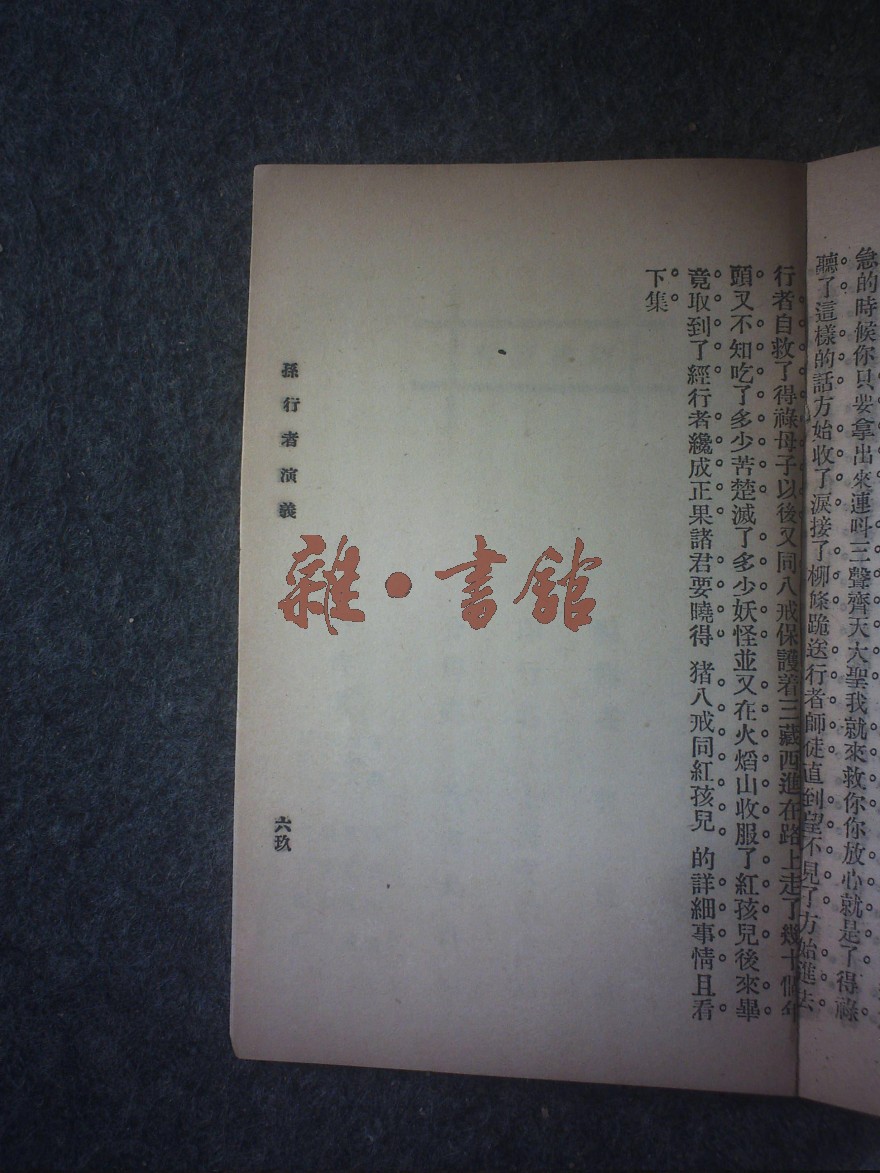 急的時候你只要拿出來連叫三聲齊天大聖我就來救你你放心就是了得祿
聽了這樣的話方始收了淚接了柳條跪送行者師徒直到望不見了方始進去
行者自救了得祿母子以後又同八戒保護着三藏西進在路上走了幾十個年
頭又不知吃了多少苦楚滅了多少妖怪並又在火熖山收服了紅孩兒後來畢
竟取到了經行者纔成正果諸君要曉得 猪八戒同紅孩兒 的詳細事情且看
下集
孫行者演義
六玖
雜·書館